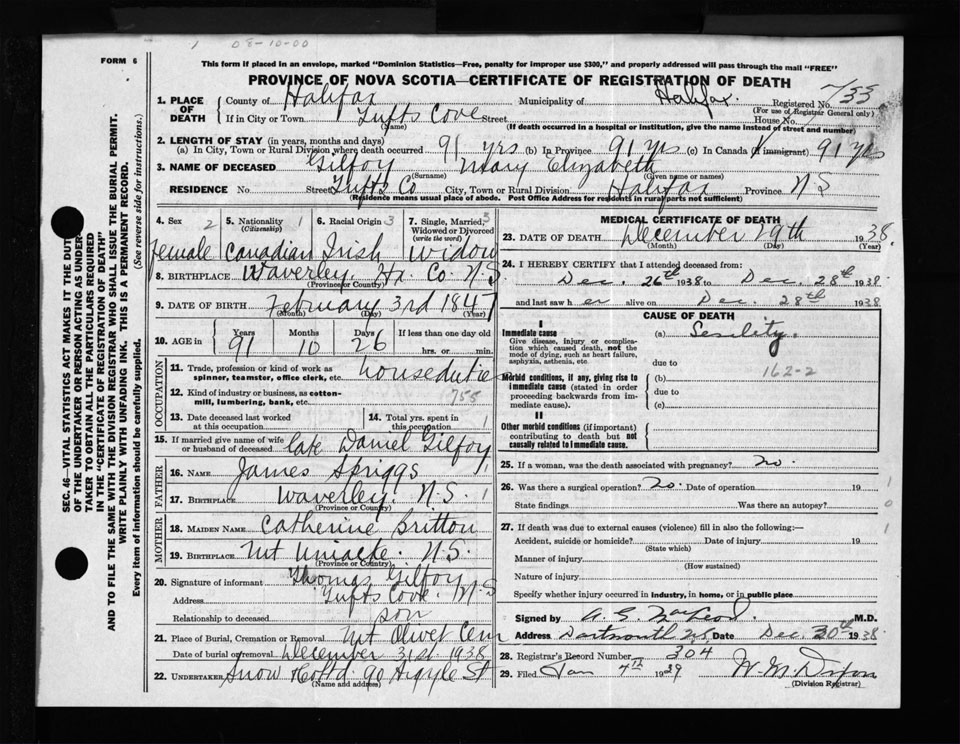 1 08-10-00
FORM 6
This form if placed in an envelope, marked "Dominion Statistics—Free, penalty for improper use $300," and properly addressed will pass through the mail "FREE"
PROVINCE OF NOVA SCOTIA—CERTIFICATE OF REGISTRATION OF DEATH
1. PLACE OF DEATH County of Halifax Municipality of Halifax. Registered No. 733
(For use of Registrar General only)
If in City or Town Tufts Cove Street House No.
(Name) (If death occurred in a hospital or institution, give the name instead of street and number)
2. LENGTH OF STAY (in years, months and days)
(a) In City, Town or Rural Division where death occurred 91 yrs (b) In Province 91 yrs (c) In Canada if immigrant) 91 yrs
3. NAME OF DECEASED Gilfoy Mary Elizabeth
(Surname) (Given name or names)
RESIDENCE No. Street Tufts Co City, Town or Rural Division Halifax Province N S
(Residence means usual place of abode. Post Office Address for residents in rural parts not sufficient)
4. Sex 2 5. Nationality 1 (Citizenship) 6. Racial Origin 3 7. Single, Married, Widowed or Divorced (write the word) 3
female Canadian Irish Widow
8. BIRTHPLACE Waverley. Hx. Co. N.S.
(Province or Country)
9. DATE OF BIRTH February 3rd 1847
(Month) (Day) (Year)
10. AGE in Years Months Days If less than one day old
91 10 26 hrs. or min.
OCCUPATION
11. Trade, profession or kind of work as spinner, teamster, office clerk, etc. house duties
12. Kind of industry or business, as cotton-mill, lumbering, bank, etc. 755
13. Date deceased last worked at this occupation 14. Total yrs. spent in this occupation 1
15. If married give name of wife or husband of deceased late Daniel Gilfoy
FATHER
16. NAME James Spriggs 1
17. BIRTHPLACE Waverley. N.S. 1
(Province or Country)
MOTHER
18. MAIDEN NAME Catherine Britton
19. BIRTHPLACE Mt Uniacke. N.S.
(Province or Country)
20. Signature of informant Thomas Gilfoy
Address Tufts Cove. N.S
Relationship to deceased son
21. Place of Burial, Cremation or Removal Mt Olivet Cem
Date of burial or removal December 31st 1938
22. UNDERTAKER Snow Co Ltd 90 Argyle St
(Name and address)
MEDICAL CERTIFICATE OF DEATH
23. DATE OF DEATH December 29th 1938.
(Month) (Day) (Year)
24. I HEREBY CERTIFY that I attended deceased from:
Dec. 26th 1938 to Dec. 28th 1938
and last saw h er alive on Dec. 28th 1938
CAUSE OF DEATH
I
Immediate cause (a) Senility.
Give disease, injury or complication which caused death, not the mode of dying, such as heart failure, asphyxia, asthenia, etc.
due to
162-2
Morbid conditions, if any, giving rise to immediate cause (stated in order proceeding backwards from immediate cause). (b)
due to
(c)
II
Other morbid conditions (if important) contributing to death but not causally related to immediate cause.
25. If a woman, was the death associated with pregnancy? no.
26. Was there a surgical operation? no. Date of operation 19 1
State findings Was there an autopsy? 0
27. If death was due to external causes (violence) fill in also the following:— 1
Accident, suicide or homicide? Date of injury 19
(State which)
Manner of injury
(How sustained)
Nature of injury
Specify whether injury occurred in industry, in home, or in public place
Signed by M.D.
Address Dartmouth NS Date Dec. 30th 1938.
28. Registrar's Record Number 304
29. Filed Jan 4th 1939
(Division Registrar)
SEC. 46—VITAL STATISTICS ACT MAKES IT THE DUTY
OF THE UNDERTAKER OR PERSON ACTING AS UNDER-
TAKER TO OBTAIN ALL THE PARTICULARS REQUIRED
IN THE "CERTIFICATE OF REGISTRATION OF DEATH"
AND TO FILE THE SAME WITH THE DIVISION REGISTRAR WHO SHALL ISSUE THE BURIAL PERMIT.
WRITE PLAINLY WITH UNFADING INK. THIS IS A PERMANENT RECORD.
Every item of information should be carefully supplied. (See reverse side for instructions.)